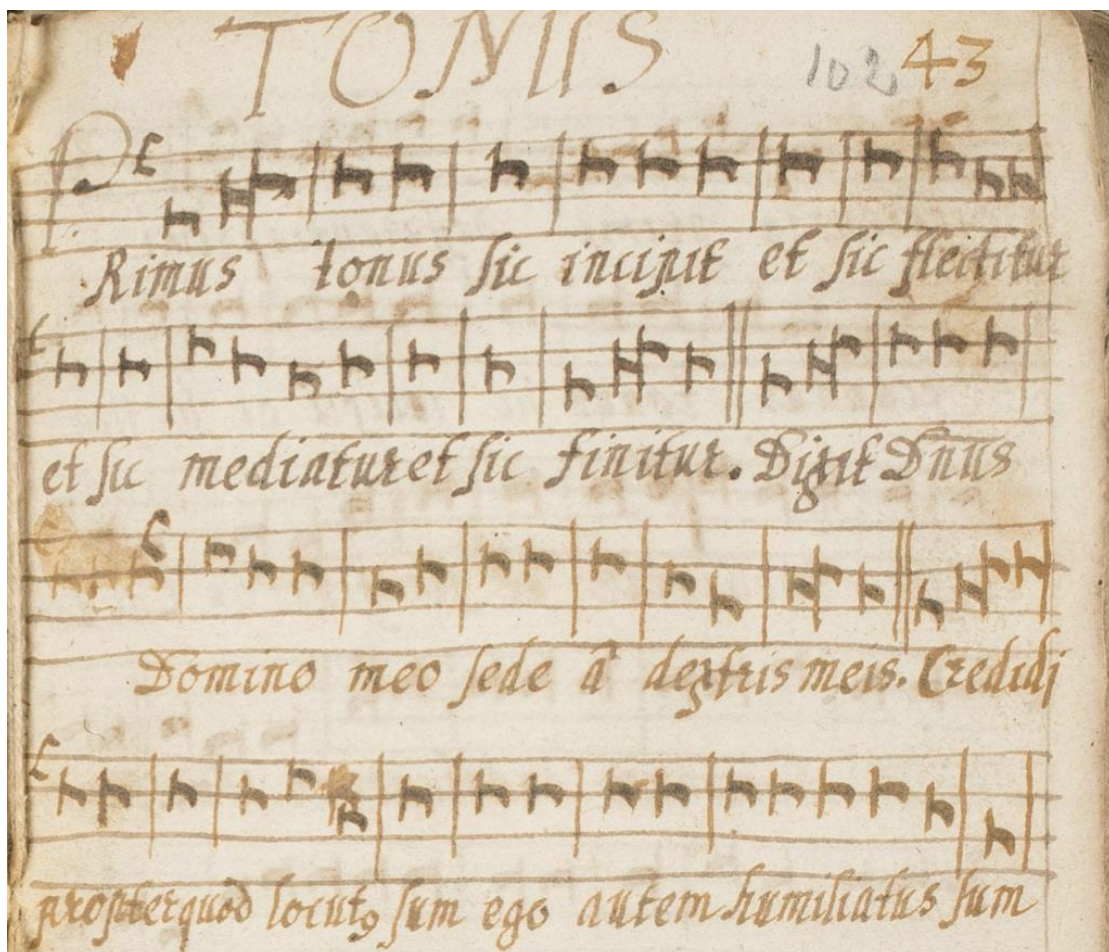 TONUS
102 43
PRimus tonus sic incipit et sic flectitur
et sic mediatur et sic finitur. Dixit Dñus
Domino meo sede á dextris meis. Credidi
propterquod locutꝯ sum ego autem humiliatus sum